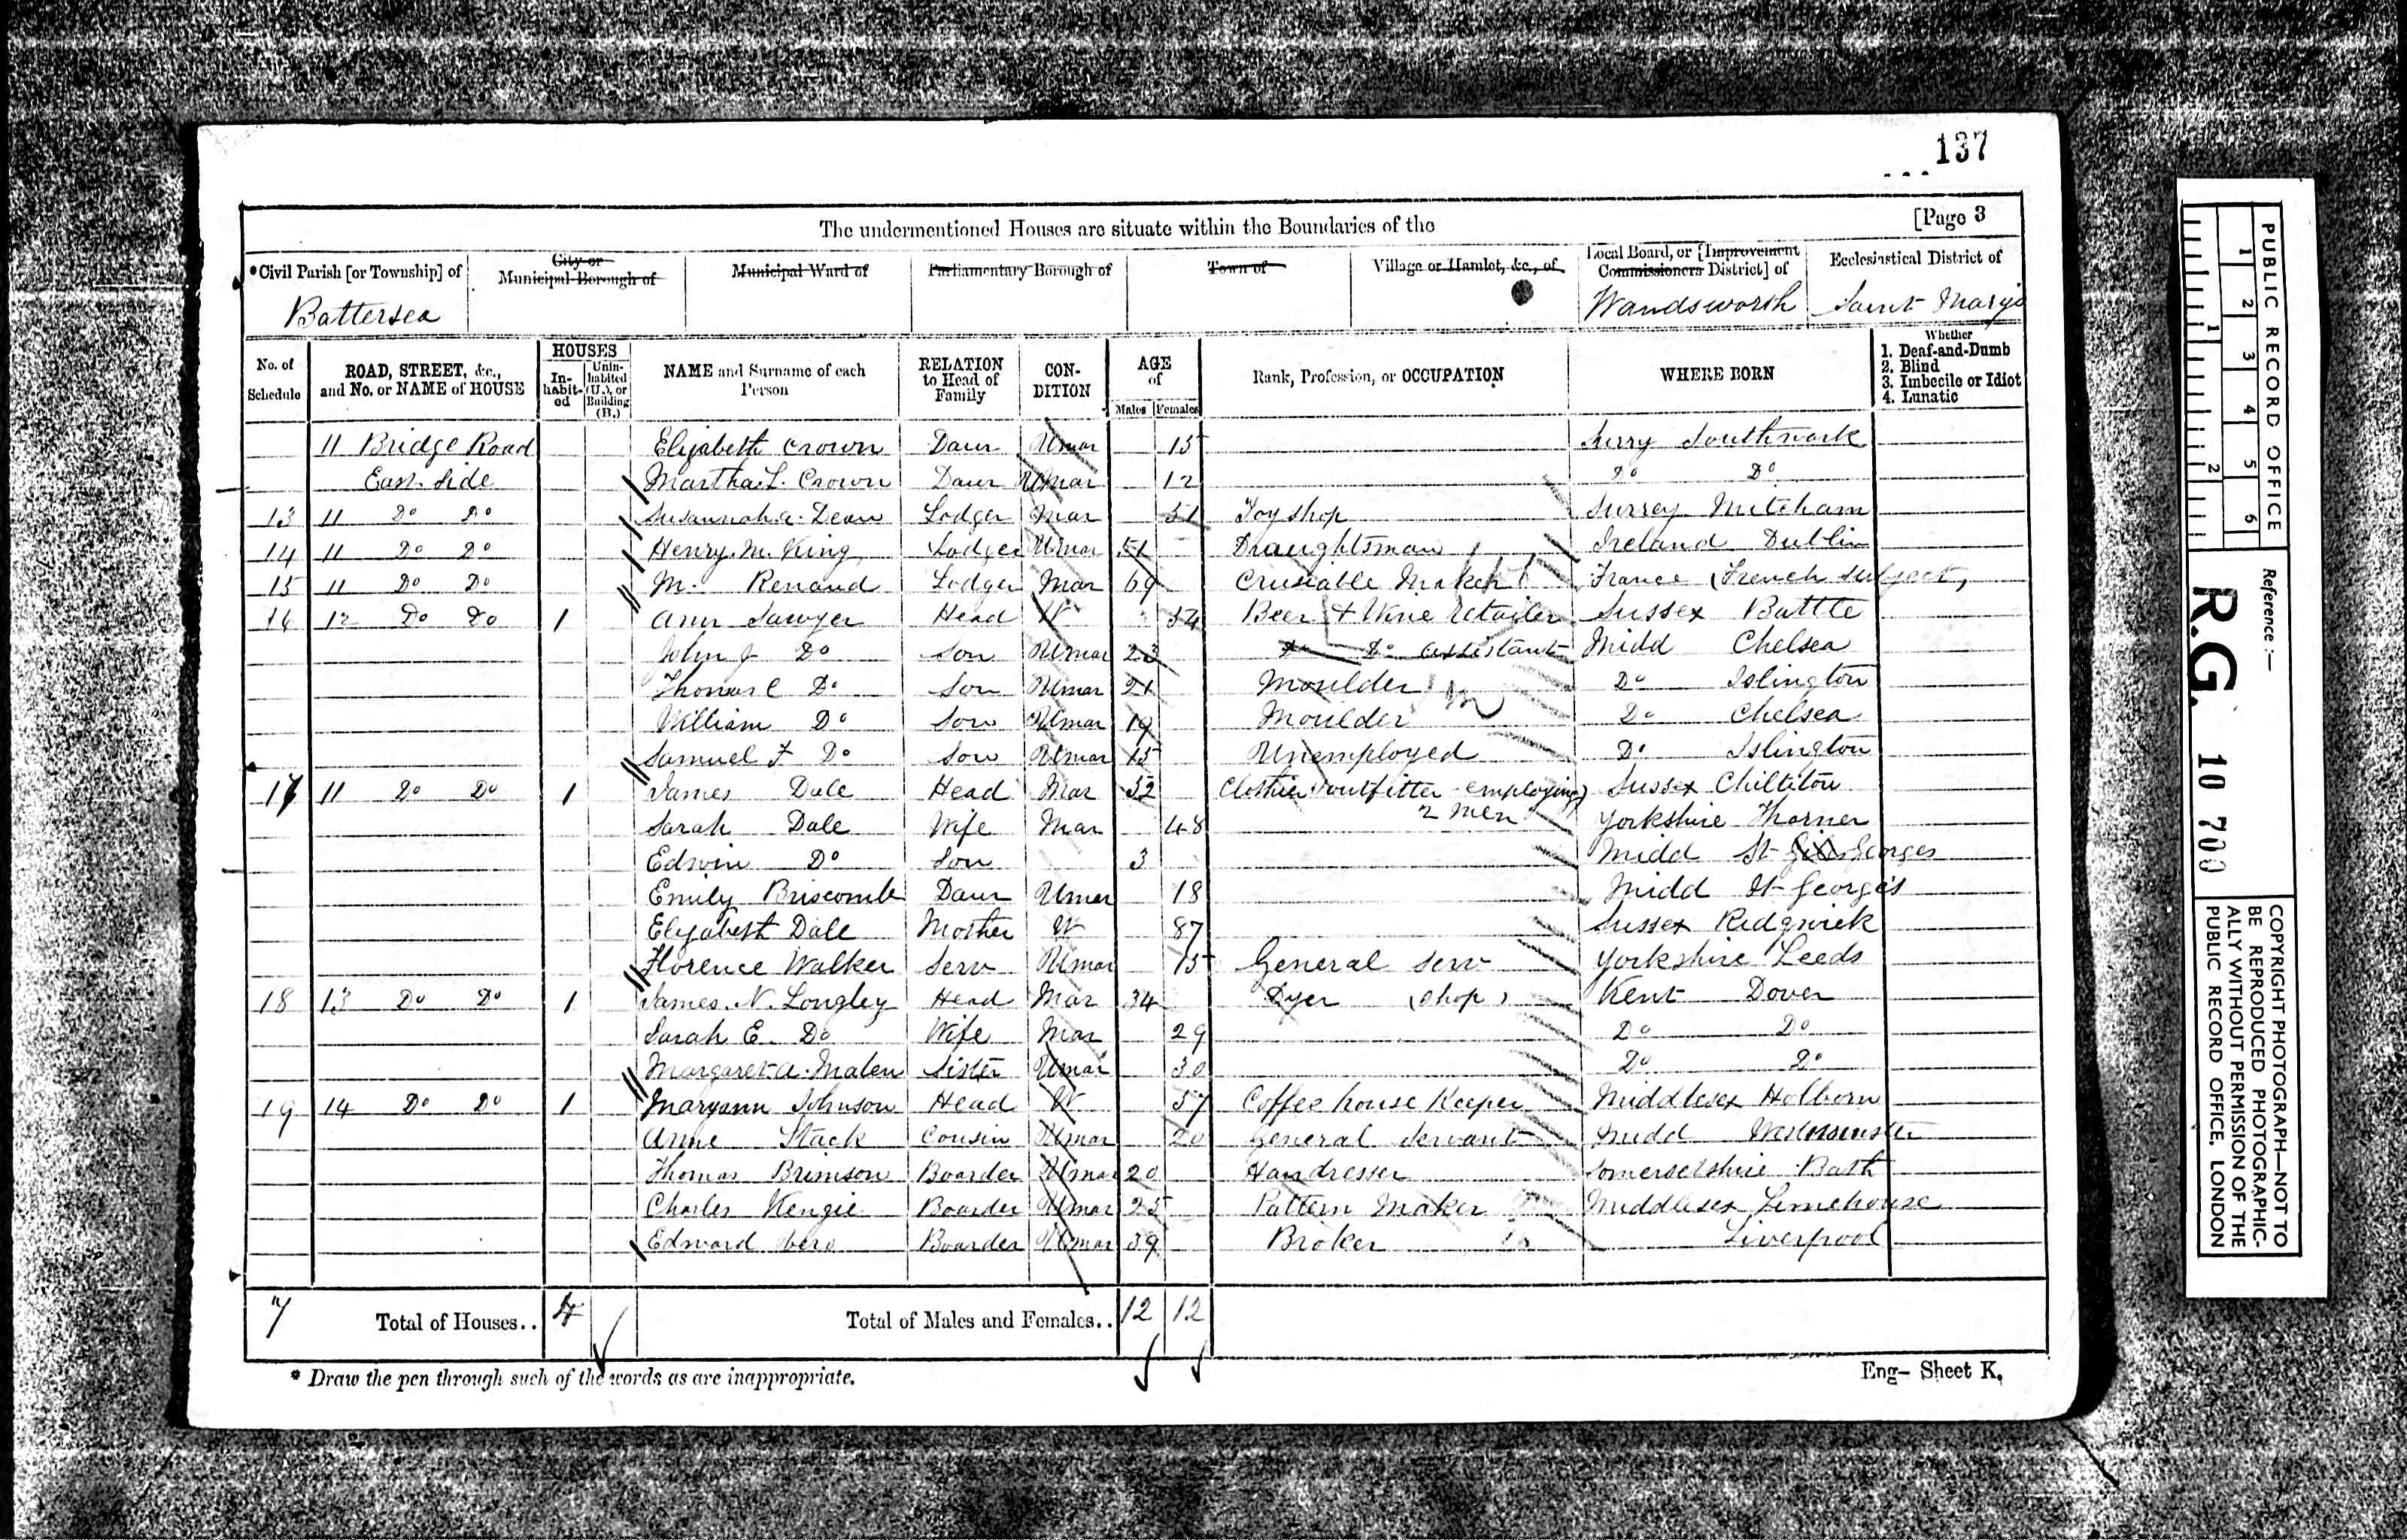 137
The undermentioned Houses are situate within the Boundaries of the [Page 3
*Civil Parish [or Township] of City or Municipal Borough of Municipal Ward of Parliamentary Borough of Town of Village or Hamlet, &c., of Local Board, or [Improvement Commissioners District] of Ecclesiastical District of
Battersea Wandsworth Saint Mary's
No. of Schedule ROAD, STREET, &c., and No. or NAME of HOUSE HOUSES Inhabited Uninhabited (U.), or Building (B.) NAME and Surname of each Person RELATION to Head of Family CONDITION AGE of Males Females Rank, Profession, or OCCUPATION WHERE BORN Whether 1. Deaf-and-Dumb 2. Blind 3. Imbecile or Idiot 4. Lunatic
11 Bridge Road Elizabeth Crown Daur Unmar 15 Surry Southwark
East side Martha L. Crown Daur Unmar 12 Do Do
13 11 Do Do Susannah A. Dean Lodger Mar 51 Toy shop Surrey Mitcham
14 11 Do Do Henry M. King Lodger Unmar 51 Draughtsman Ireland Dublin
15 11 Do Do M. Renaud Lodger Mar 69 Cruciable Maker France (French Subject)
16 12 Do Do 1 Ann Sawyer Head W 54 Beer & Wine Retailer Sussex Battle
John J Do Son Unmar 23 Do Do assistant Midd Chelsea
Thomas C Do Son Unmar 21 Moulder Do Islington
William Do Son Unmar 19 Moulder Do Chelsea
Samuel F Do Son Unmar 15 Unemployed Do Islington
17 11 Do Do 1 James Dale Head Mar 52 Clothier & outfitter employing 2 men Sussex Chiltiton
Sarah Dale Wife Mar 48 Yorkshire Thorner
Edwin Do Son 3 Midd St Georges
Emily Briscomb Daur Unmar 18 Midd St George's
Elizabeth Dale Mother W 87 Sussex Ridgwick
Florence Walker Serv Unmar 15 General Serv Yorkshire Leeds
18 13 Do Do 1 James N. Longley Head Mar 34 Dyer (Shop) Kent Dover
Sarah E. Do Wife Mar 29 Do Do
Margaret A. Malen Sister Unmar 30 Do Do
19 14 Do Do 1 Maryann Johnson Head W 57 Coffee house Keeper Middlesex Holborn
Anne Stack Cousin Unmar 20 General Servant Midd Westminster
Thomas Brimson Boarder Unmar 20 Hairdresser Somersetshire Bath
Charles Kengie Boarder Unmar 25 Pattern Maker Middlesex Limehouse
Edward Boarder Unmar 39 Broker Liverpool
7 Total of Houses.. 4 Total of Males and Females.. 12 12
* Draw the pen through such of the words as are inappropriate.
Eng- Sheet K.
PUBLIC RECORD OFFICE
1 2 3 4 5 6
1 2
Reference :-
R.G. 10 700
COPYRIGHT PHOTOGRAPH—NOT TO
BE REPRODUCED PHOTOGRAPHIC-
ALLY WITHOUT PERMISSION OF THE
PUBLIC RECORD OFFICE, LONDON